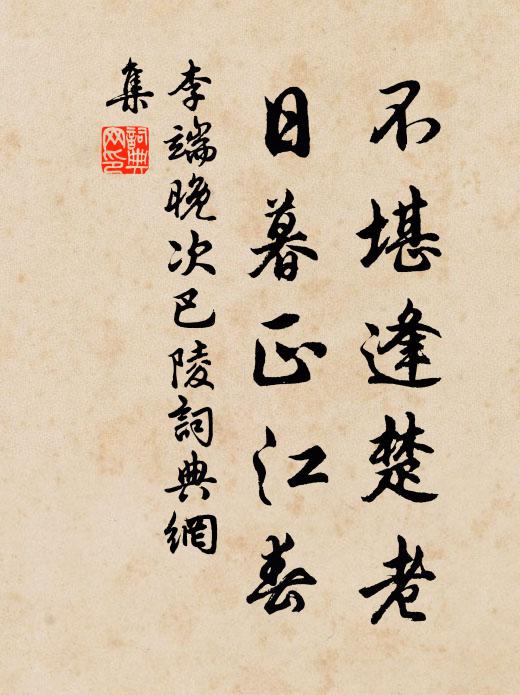 不堪逢楚老
日暮正江春
李端晚次巴陵詞典網
集
詞典网印